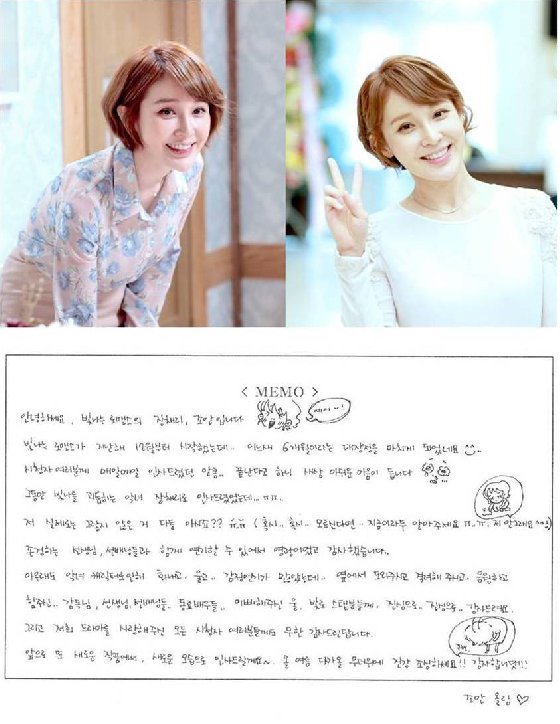 < MEMO >
안녕하세요, 빛나는 로맨스의 장채리, 조안입니다
빛나는 로맨스가 지난해 12월부터 시작했는데.. 어느새 6개월이라는 대장정을 마치게 되었네요
시청자 여러분께 매일매일 인사드렸던 만큼.. 끝난다고 하니 마음이 듭니다
그동안 빛나를 괴롭히는 악녀 장채리로 인사드렸었는데...ㅠㅠ.
저 실제로는 그렇지 않은 거 다들 아시죠?? ㅠㅠ (혹시.. 혹시.. 모르신다면.. 지금이라두 알아주세요 ㅠ.ㅠ. 저 안그래요 ^^)
존경하는 선생님, 선배님들과 함께 연기할 수 있어서 영광이었고 감사했습니다.
아무래도 악녀 캐릭터로인해 화내고.. 울고.. 감정연기가 많았었는데.. 옆에서 도와주시고 격려해 주시고.. 응원하고
힘주신.. 감독님, 선생님, 선배님들.. 동료배우들.. 이뻐해주신 울, 빛로 스텝분들께.. 진심으로.. 진심으로.. 감사드려요.
그리고 저희 드라마를 사랑해주신 모든 시청자 여러분들께도 무한 감사드립니다.
앞으로 또 새로운 작품에서, 새로운 모습으로 인사드릴게요~. 올 여름 다가올 무더위에 건강 조심하세요!! 감사합니다!!
조안 올림 ♡